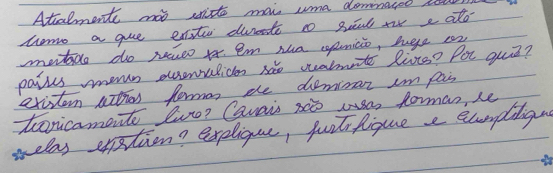 Atualmente não existe mais uma dominação
como a que existiu durante o século XIX e até
metade do século XX. Em sua opinião, hoje os
países menos desenvolvidos são realmente livres? Por quê?
existem outras formas de dominar um país
teoricamente livre? Quais são essas formas, se
elas existirem? Explique, justifique e exemplifique